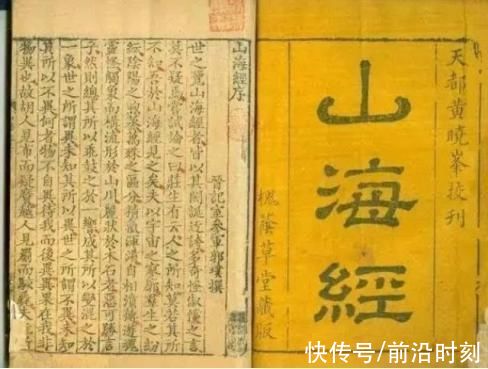 天都黄曉峯挍刊
山海經
槐蔭草堂藏版
山海經序
晉記室參軍郭璞撰
世之覽山海經者皆以其閎誕迂誇多奇怪俶儻之言
莫不疑焉嘗試論之曰莊生有云人之所知莫若其所
不知吾於山海經見之矣夫以宇宙之寥廓羣生之紛
紜陰陽之煦蒸萬殊之區分精氣渾淆自相濆薄遊魂
靈怪觸象而構流形於山川麗狀於木石者惡可勝言
乎然則總其所以乖鼓之於一響成其所以變混之於
一象世之所謂異未知其所以異世之所謂不異未知
其所以不異何者物不自異待我而後異異果在我非
物異也故胡人見布而疑黂越人見罽而駭毳夫
快传号/前沿时刻